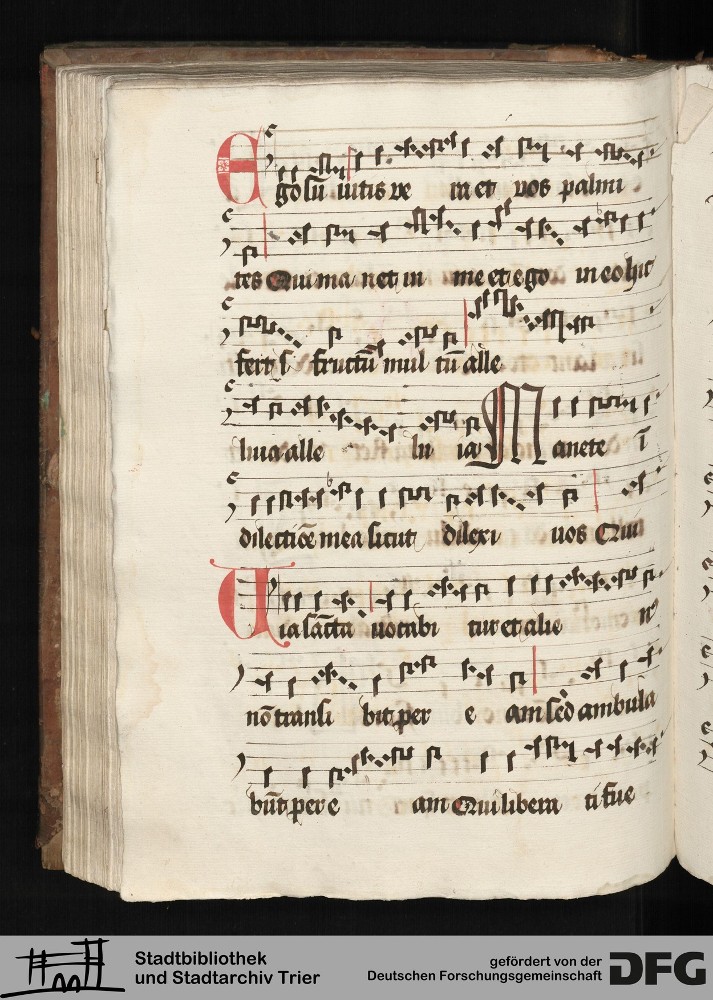 Ego sū uitis ve ra et vos palmi
tes Qui ma net in me et ego in eo hic
fert fructū mul tū alle
luia alle lu ia Manete ī
dilectiōe mea sicut dilexi uos Qui
Uia sācta uocabi tur et alie nꝰ
nō transi bit per e am sed ambula
būt per e am Qui libera ti fue
Stadtbibliothek
und Stadtarchiv Trier
gefördert von der
Deutschen Forschungsgemeinschaft
DFG